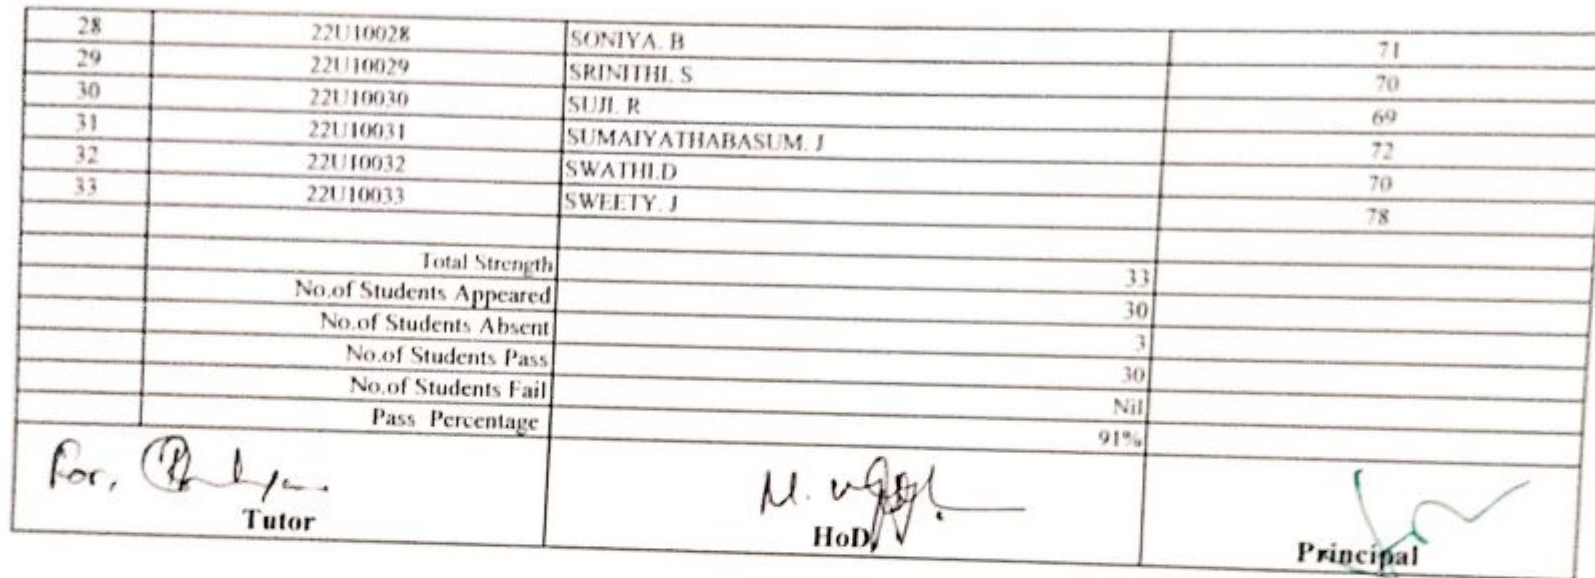 28 22U10028 SONIYA. B 71
29 22U10029 SRINITHI. S 70
30 22U10030 SUJI. R 69
31 22U10031 SUMAIYATHABASUM. J 72
32 22U10032 SWATHI.D 70
33 22U10033 SWEETY. J 78
Total Strength 33
No.of Students Appeared 30
No.of Students Absent 3
No.of Students Pass 30
No.of Students Fail Nil
Pass Percentage 91%
For,
M.
Tutor HoD Principal